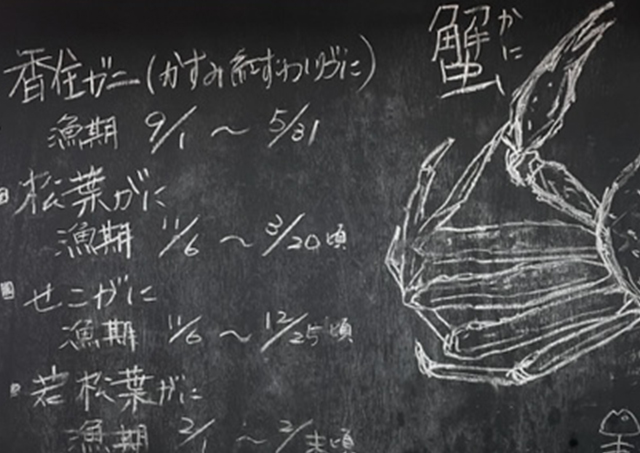 蟹
かに
香住ガニ(かすみ紅ずわいがに)
漁期 9/1 ~ 5/31
松葉がに
漁期 11/6 ~ 3/20頃
せこがに
漁期 11/6 ~ 12/25頃
若松葉がに
漁期 2/1 ~ 2/末頃